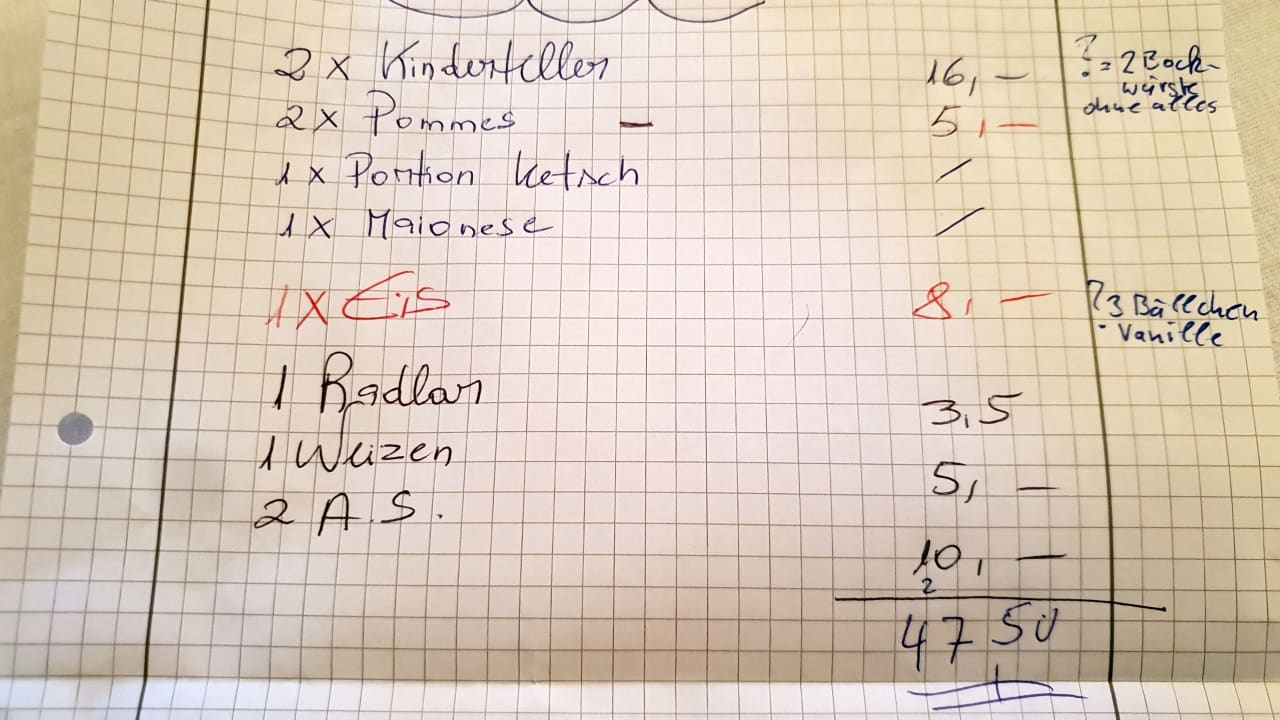 2 x Kinderteller 16,– ? = 2 Bock-
würste
ohne alles
2 x Pommes – 5,–
1 x Portion Ketsch /
1 x Maionese /
1 x Eis 8,– ? 3 Bällchen
Vanille
1 Radlar 3,5
1 Weizen 5,–
2 A.S. 10,–
2
47 50